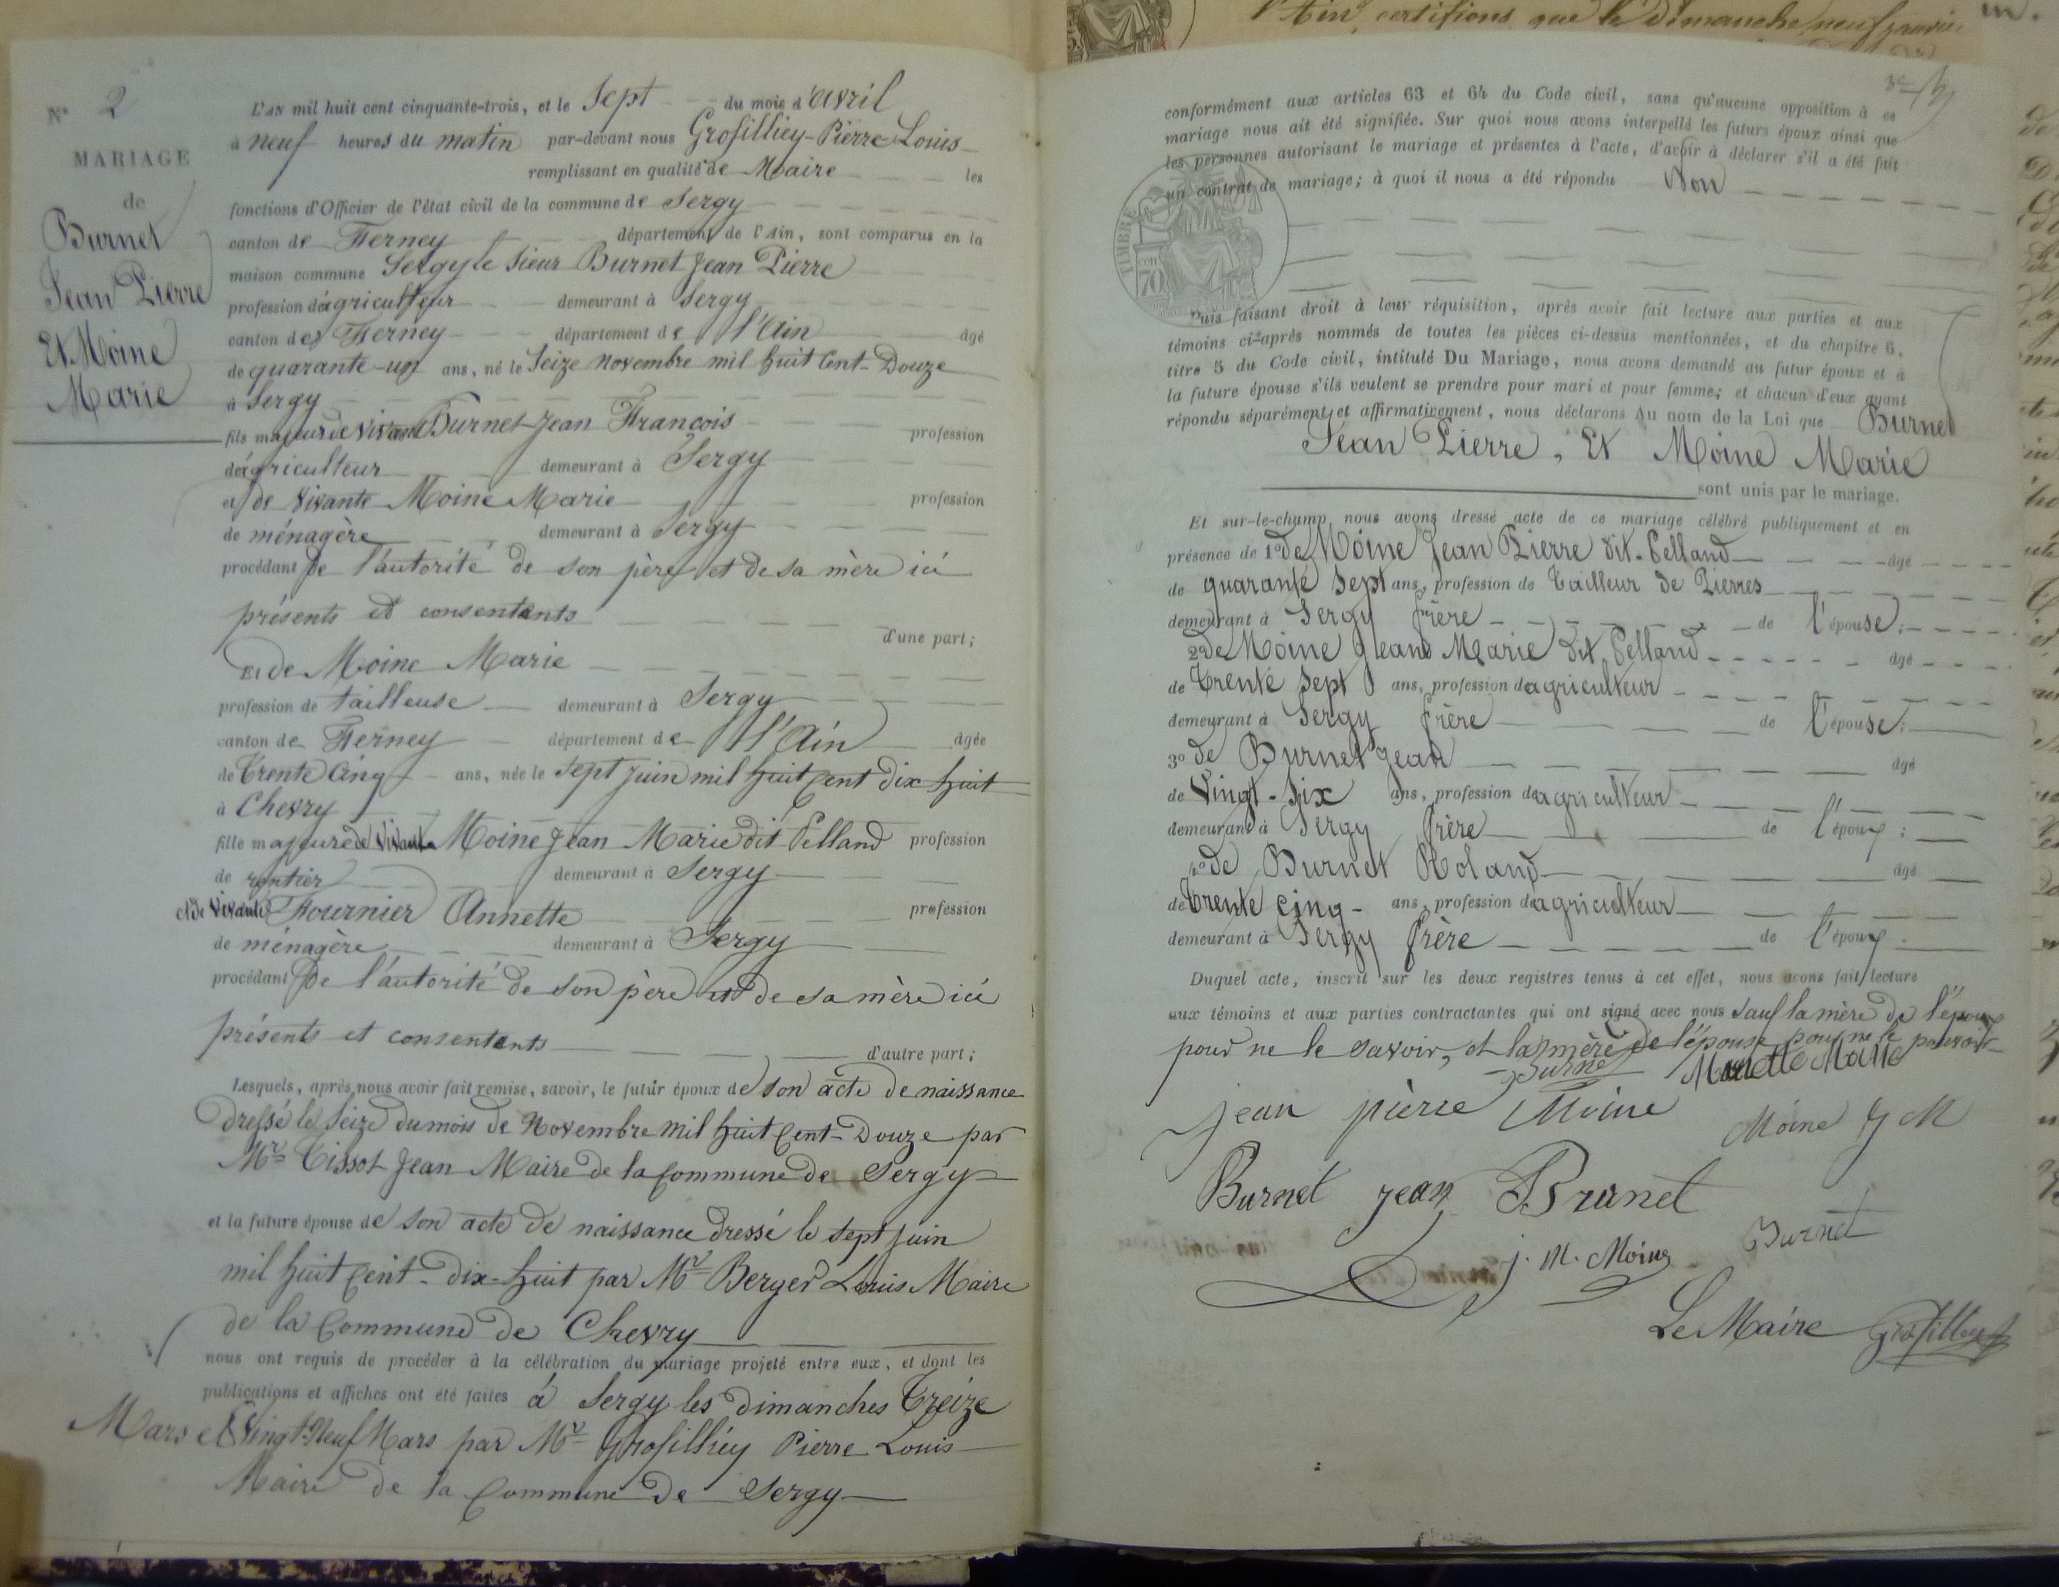 N° 2
MARIAGE
de
Burnet
Jean Pierre
Et Moine
Marie
L'AN mil huit cent cinquante-trois, et le Sept du mois d'avril
à neuf heures du matin par-devant nous Grosilliey-Pierre-Louis
remplissant en qualité de Maire les
fonctions d'Officier de l'état civil de la commune de Sergy
canton de Ferney département de l'Ain, sont comparus en la
maison commune Sergy le Sieur Burnet Jean Pierre
profession d'agriculteur demeurant à Sergy
canton de Ferney département de l'Ain âgé
de quarante-un ans, né le Seize novembre mil huit Cent-Douze
à Sergy
fils majeur de vivant Burnet Jean François profession
d'agriculteur demeurant à Sergy
et de vivante Moine Marie profession
de ménagère demeurant à Sergy
procédant de l'autorité de son père et de sa mère ici
présents et consentants
d'une part;
Et de Moine Marie
profession de tailleuse demeurant à Sergy
canton de Ferney département de l'Ain âgée
de Trente Cinq ans, née le Sept juin mil huit Cent dix-huit
à Chevry
fille majeure de vivant Moine Jean Marie dit Pelland profession
de rentier demeurant à Sergy
et de vivante Fournier Annette profession
de ménagère demeurant à Sergy
procédant de l'autorité de son père et de sa mère ici
présents et consentants
d'autre part;
Lesquels, après nous avoir fait remise, savoir, le futur époux de son acte de naissance
dressé le Seize du mois de Novembre mil huit Cent-Douze par
Mr Tissot Jean Maire de la Commune de Sergy
et la future épouse de son acte de naissance dressé le Sept juin
mil huit Cent-dix-huit par Mr Berger Louis Maire
de la Commune de Chevry
nous ont requis de procéder à la célébration du mariage projeté entre eux, et dont les
publications et affiches ont été faites à Sergy les dimanches Treize
Mars et Vingt-Neuf Mars par Mr Grosilliey Pierre Louis
Maire de la Commune de Sergy
l'Ain, certifions que le dimanche neuf janvier
conformément aux articles 63 et 64 du Code civil, sans qu'aucune opposition à ce
mariage nous ait été signifiée. Sur quoi nous avons interpellé les futurs époux ainsi que
les personnes autorisant le mariage et présentes à l'acte, d'avoir à déclarer s'il a été fait
un contrat de mariage; à quoi il nous a été répondu Non
TIMBRE
70
Puis faisant droit à leur réquisition, après avoir fait lecture aux parties et aux
témoins ci-après nommés de toutes les pièces ci-dessus mentionnées, et du chapitre 6,
titre 5 du Code civil, intitulé Du Mariage, nous avons demandé au futur époux et à
la future épouse s'ils veulent se prendre pour mari et pour femme; et chacun d'eux ayant
répondu séparément et affirmativement, nous déclarons Au nom de la Loi que Burnet
Jean Pierre, Et Moine Marie
sont unis par le mariage.
Et sur-le-champ nous avons dressé acte de ce mariage célébré publiquement et en
présence de 1° de Moine Jean Pierre dit-Pelland âgé
de quarante sept ans, profession de Tailleur de Pierres
demeurant à Sergy frère de l'épouse;
2° de Moine Jean Marie dit Pelland âgé
de Trente Sept ans, profession d'agriculteur
demeurant à Sergy frère de l'épouse;
3° de Burnet Jean âgé
de Vingt-Six ans, profession d'agriculteur
demeurant à Sergy frère de l'époux;
4° de Burnet Roland âgé
de Trente cinq ans, profession d'agriculteur
demeurant à Sergy frère de l'époux.
Duquel acte, inscrit sur les deux registres tenus à cet effet, nous avons fait lecture
aux témoins et aux parties contractantes qui ont signé avec nous Sauf la mère de l'époux
pour ne le savoir, et la mère de l'épouse pour ne le pouvoir
Burnet
jean pierre Moine Moine J M
Burnet jean Brunet
j. M. Moine Burnet
Le Maire Grosilliey